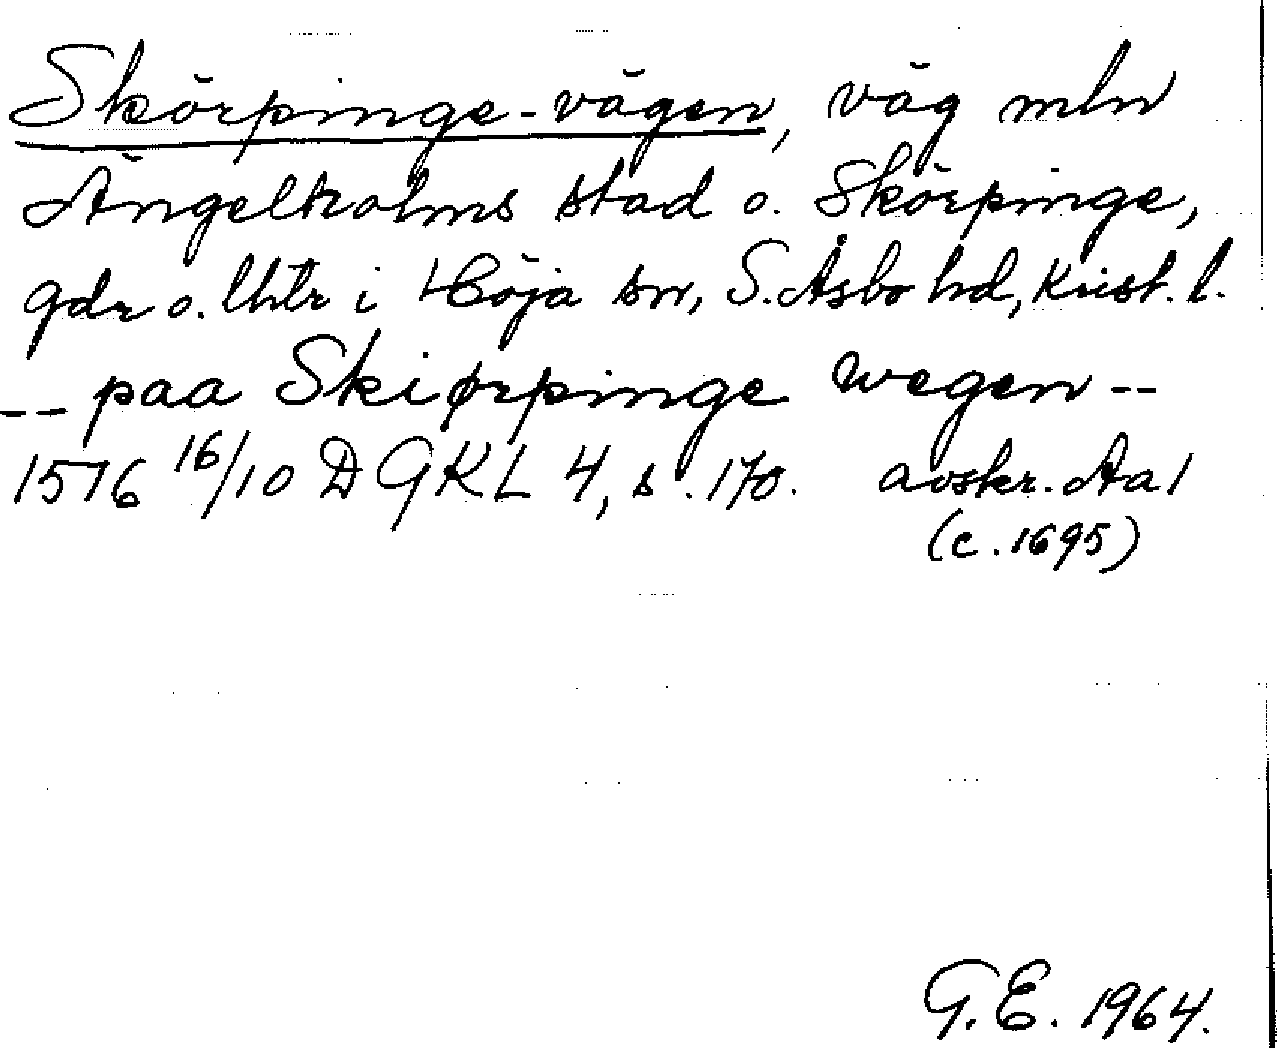 Skörpinge-vägen, väg mln
Ängelholms stad o. Skörpinge,
gdr o. lhtr i Höja sn, S. Åsbo hd, Krist. l.
-- paa Skiørpinge wegen --
1576 16/10 DGKL 4, s. 170. avskr. Aa 1
(c. 1695)
G.E. 1964.